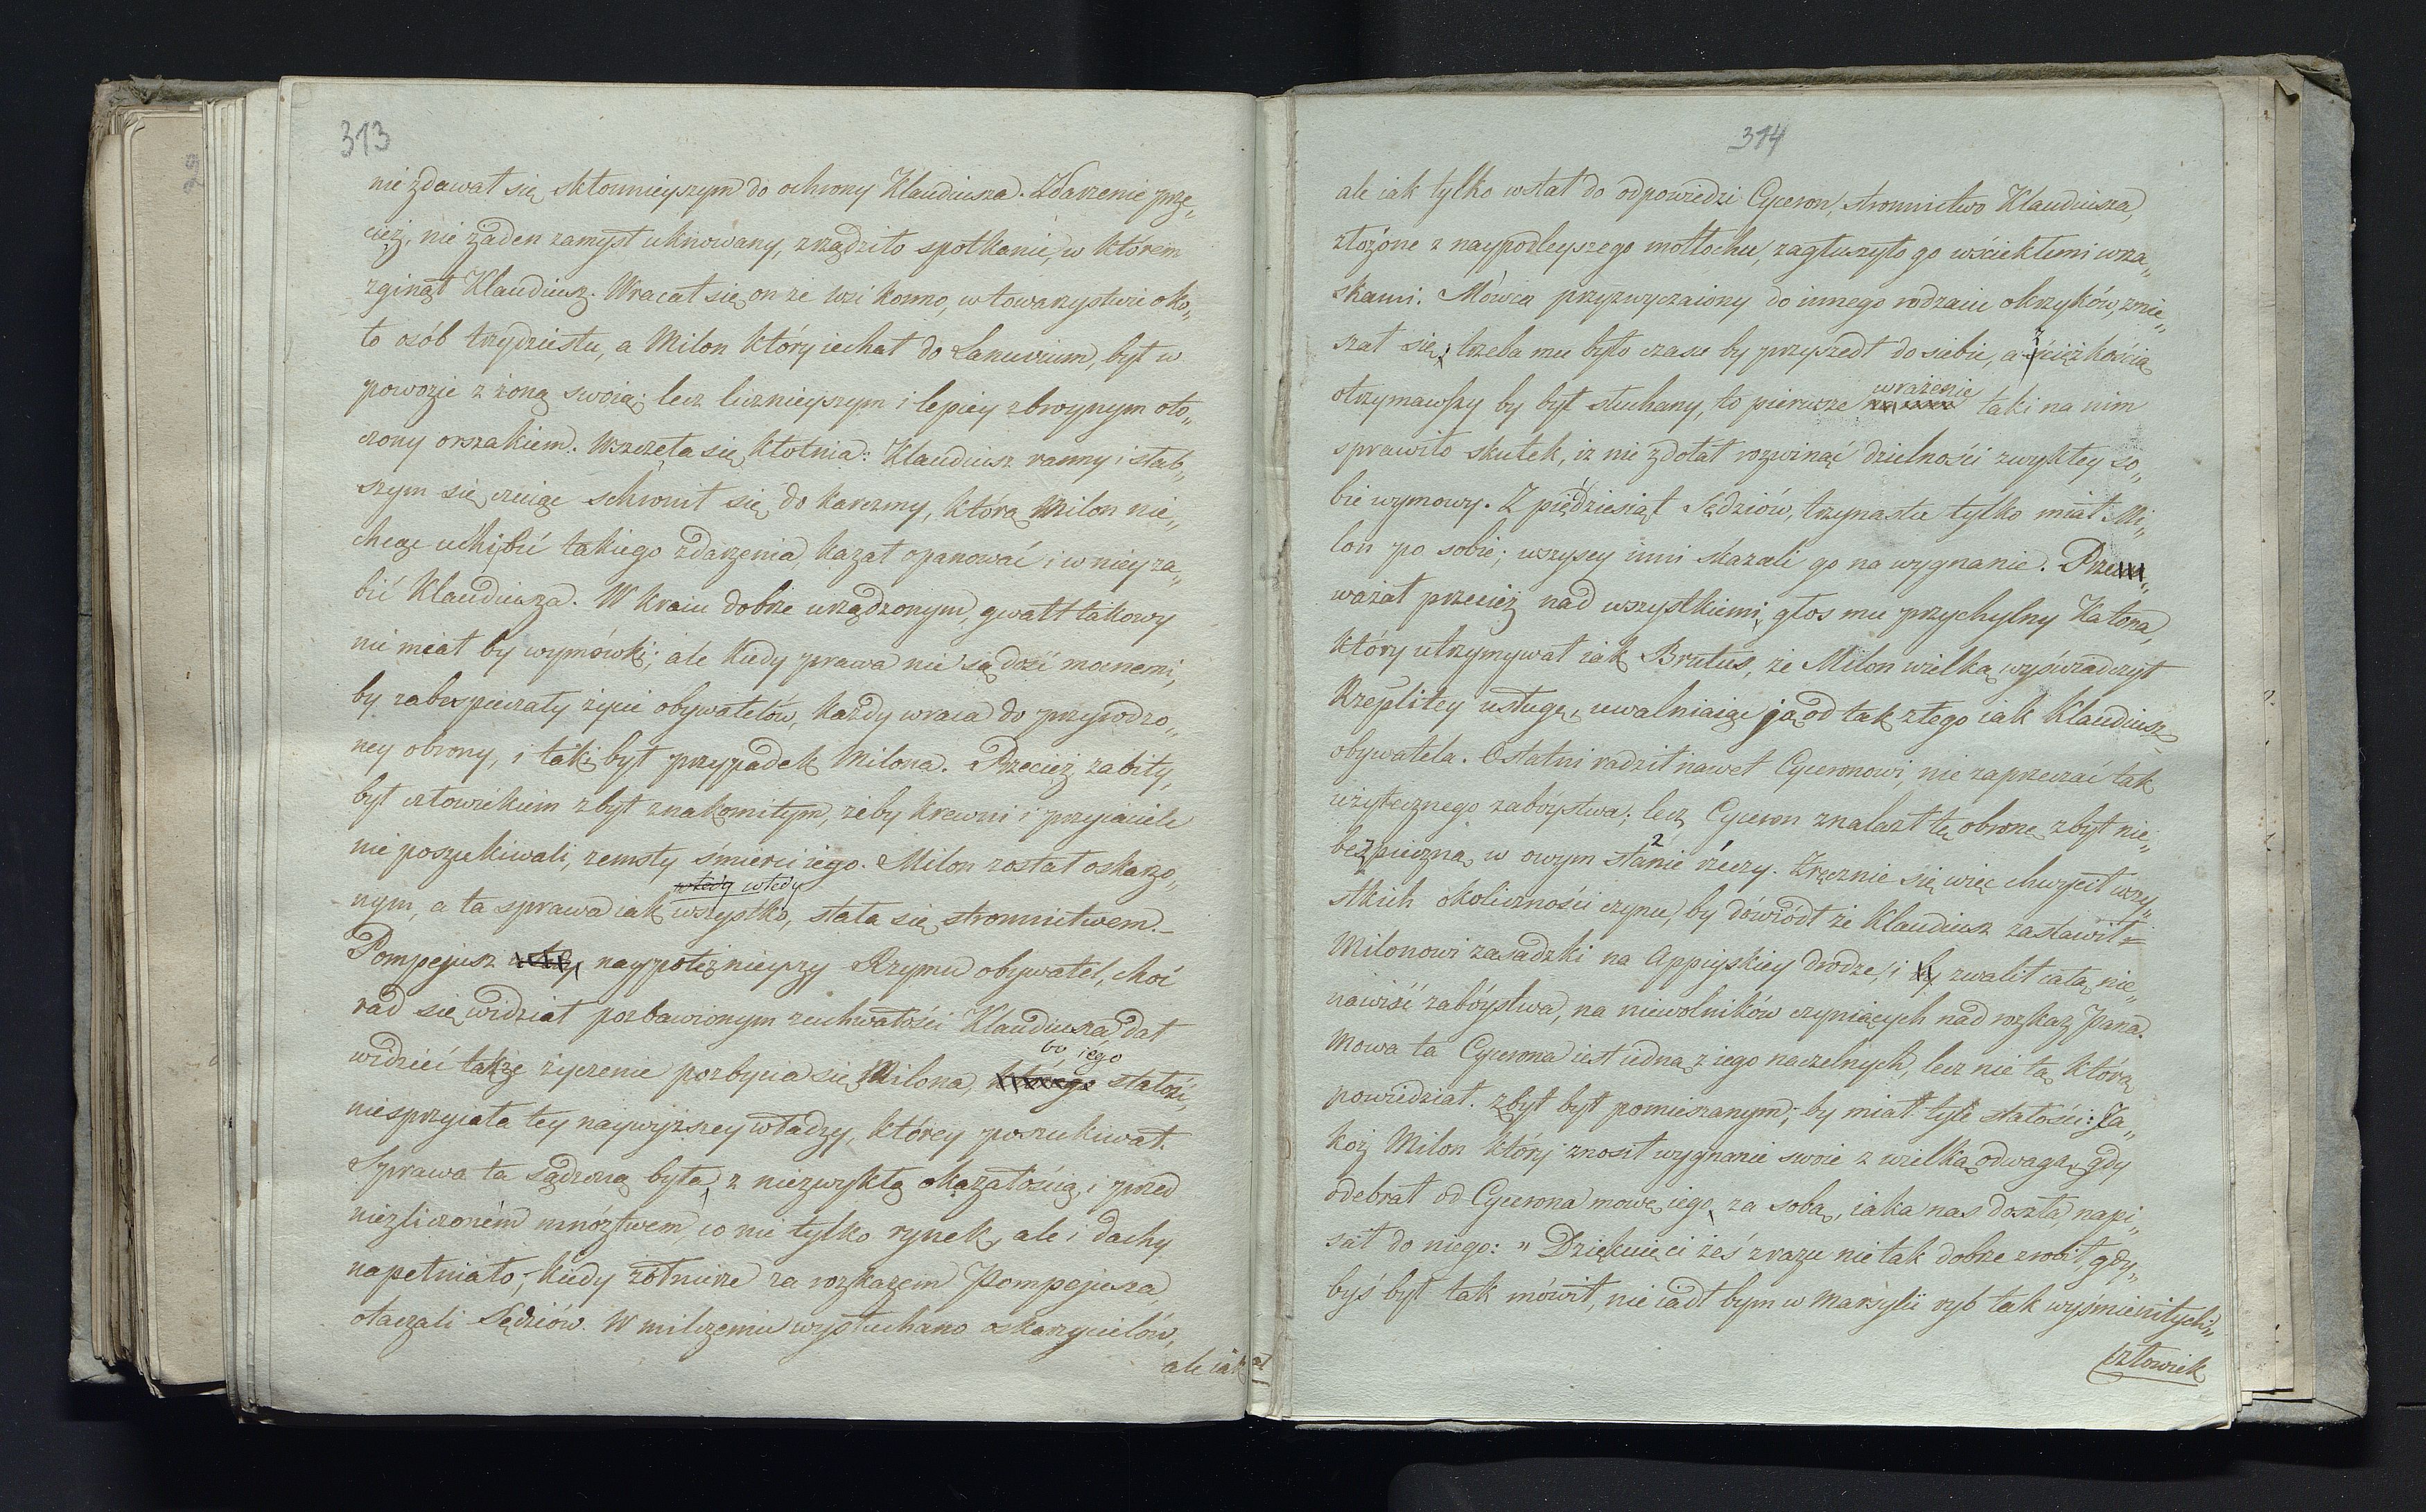 313
nie zdawał się skłonnieyszym do ochrony Klaudiusza. Zdarzenie prze„
cież, nie żaden zamysł uknowany, zrządziło spotkanie, w którem
zginął Klaudiusz. Wracał się on ze wsi konno, w towarzystwie oko„
ło osób trzydziestu, a Milon który iechał do Lanuvium, był w
powozie z żoną swoią; lecz licznieyszym i lepiey zbroynym oto„
czony orszakiem. Wszczęła się kłótnia: Klaudiusz ranny i słab„
szym się czuiąc schronił się do karczmy, którą Milon nie„
chcąc uchibić takiego zdarzenia, kazał opanować i w niey za„
bić Klaudiusza. W kraiu dobrze urządzonym, gwałt takowy
nie miał by wymówki; ale kiedy prawa nie są dość mocnemi,
by zabespieczały życie obywatelów, każdy wraca do przyrodzo„
ney obrony, i taki był przypadek Milona. Przecież zabity,
był człowiekiem zbyt znakomitym, żeby krewni i przyiaciele
nie poszukiwali, zemsty śmierci iego. Milon został oskarżo„
wtedy wtedy
nym, a ta sprawa iak wszystko, stała się stronnictwem.–
Pompejusz naypotężnieyszy Rzymu obywatel, choć
rad się widział pozbawionym zuchwałości Klaudiusza, dał
bo iego
widzieć także życzenie pozbycia się Milona, którego stałość,
niesprzyiała tey naywyższey władzy, którey poszukiwał.
Sprawa ta sądzoną była, z niezwykłą okazałością, i przed
niezliczoném mnóztwem, co nie tylko rynek, ale i dachy
napełniało; kiedy żołnierze za rozkazem Pompejusza,
otaczali Sędziów. W milczeniu wysłuchano oskarzycielów,
ale iak
314
ale iak tylko wstał do odpowiedzi Cyceron, stronnictwo Klaudiusza,
złożone z naypodleyszego motłochu, zagłuszyło go wściekłemi wrza„
skami. Mówca przyzwyczaiony do innego rodzaiu okrzyków, zmie„
szał się; trzeba mu było czasu by przyszedł do siebie, a z ciężkością
wrażenie
otrzymawszy by był słuchany, to pierwsze taki na nim
sprawiło skutek, iż nie zdołał rozwinąć dzielności zwykłey so„
bie wymowy. Z pięćdziesiąt Sędziów, trzynastu tylko miał Mi„
lon po sobie; wszyscy inni skazali go na wygnanie. Prze„
ważał przecież nad wszystkiemi, głos mu przychylny Katona,
który utrzymywał iak Brutus, że Milon wielką wyświadczył
Rzeplitey usługę, uwalniaiąc ją od tak złego iak Klaudiusz
obywatela. Ostatni radził nawet Cyceronowi, nie zaprzeczać tak
użytecznego zabóystwa; lecz Cyceron znalazł tę obronę zbyt nie„
2
bezpieczną w owym stanie rzeczy. Zręcznie się więc chwycił wszy„
stkich okoliczności czynu, by dowiódł że Klaudiusz zastawił=
Milonowi zasadzki na Appijskiey drodze, i zwalił całą nie„
nawiść zabóystwa, na niewolników czyniących nad rozkaz Pana.
Mowa ta Cycerona iest iedną z iego naczelnych, lecz nie tą którą
powiedział. Zbyt był pomieszanym, by miał tyle stałości: Ja„
koż Milon który znosił wygnanie swoie z wielką odwagą, gdy
odebrał od Cycerona mowę iego za sobą, iaka nas doszła, napi„
sał do niego: „ Dziękuię ci żeś zrazu nie tak dobrze zrobił, gdy„
byś był tak mówił, nie iadł bym w Marsylii ryb tak wyśmienitych„
człowiek